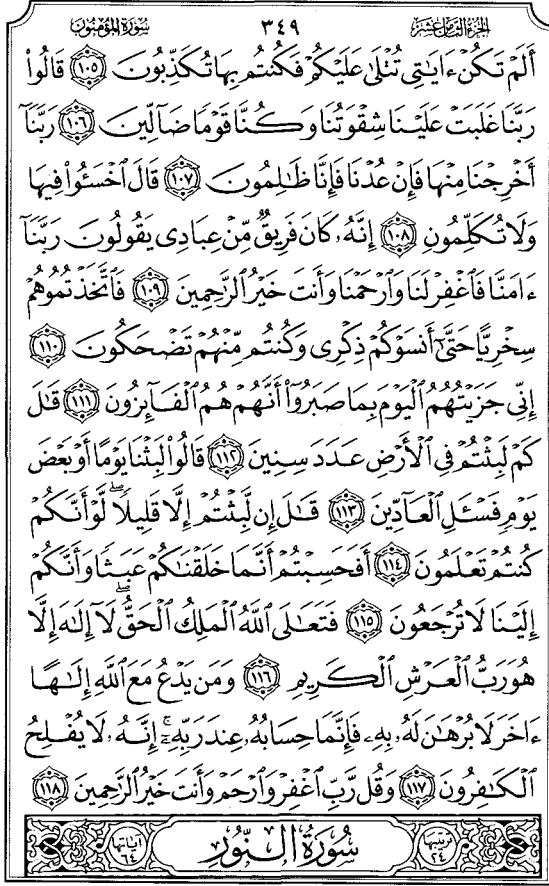 سُورَةُ المُؤْمِنُونَ ٣٤٩ الجُزْءُ الثَّامِنَ عَشَرَ
أَلَمْ تَكُنْ ءَايَٰتِى تُتْلَىٰ عَلَيْكُمْ فَكُنتُم بِهَا تُكَذِّبُونَ ١٠٥ قَالُوا۟
رَبَّنَا غَلَبَتْ عَلَيْنَا شِقْوَتُنَا وَكُنَّا قَوْمًا ضَآلِّينَ ١٠٦ رَبَّنَآ
أَخْرِجْنَا مِنْهَا فَإِنْ عُدْنَا فَإِنَّا ظَٰلِمُونَ ١٠٧ قَالَ ٱخْسَـُٔوا۟ فِيهَا
وَلَا تُكَلِّمُونِ ١٠٨ إِنَّهُۥ كَانَ فَرِيقٌ مِّنْ عِبَادِى يَقُولُونَ رَبَّنَآ
ءَامَنَّا فَٱغْفِرْ لَنَا وَٱرْحَمْنَا وَأَنتَ خَيْرُ ٱلرَّٰحِمِينَ ١٠٩ فَٱتَّخَذْتُمُوهُمْ
سِخْرِيًّا حَتَّىٰٓ أَنسَوْكُمْ ذِكْرِى وَكُنتُم مِّنْهُمْ تَضْحَكُونَ ١١٠
إِنِّى جَزَيْتُهُمُ ٱلْيَوْمَ بِمَا صَبَرُوٓا۟ أَنَّهُمْ هُمُ ٱلْفَآئِزُونَ ١١١ قَٰلَ
كَمْ لَبِثْتُمْ فِى ٱلْأَرْضِ عَدَدَ سِنِينَ ١١٢ قَالُوا۟ لَبِثْنَا يَوْمًا أَوْ بَعْضَ
يَوْمٍ فَسْـَٔلِ ٱلْعَآدِّينَ ١١٣ قَٰلَ إِن لَّبِثْتُمْ إِلَّا قَلِيلًا ۖ لَّوْ أَنَّكُمْ
كُنتُمْ تَعْلَمُونَ ١١٤ أَفَحَسِبْتُمْ أَنَّمَا خَلَقْنَٰكُمْ عَبَثًا وَأَنَّكُمْ
إِلَيْنَا لَا تُرْجَعُونَ ١١٥ فَتَعَٰلَى ٱللَّهُ ٱلْمَلِكُ ٱلْحَقُّ ۖ لَآ إِلَٰهَ إِلَّا
هُوَ رَبُّ ٱلْعَرْشِ ٱلْكَرِيمِ ١١٦ وَمَن يَدْعُ مَعَ ٱللَّهِ إِلَٰهًا
ءَاخَرَ لَا بُرْهَٰنَ لَهُۥ بِهِۦ فَإِنَّمَا حِسَابُهُۥ عِندَ رَبِّهِۦٓ ۚ إِنَّهُۥ لَا يُفْلِحُ
ٱلْكَٰفِرُونَ ١١٧ وَقُل رَّبِّ ٱغْفِرْ وَٱرْحَمْ وَأَنتَ خَيْرُ ٱلرَّٰحِمِينَ ١١٨
ترتيبها ٢٤ سُورَةُ النُّورِ آياتها ٦٤